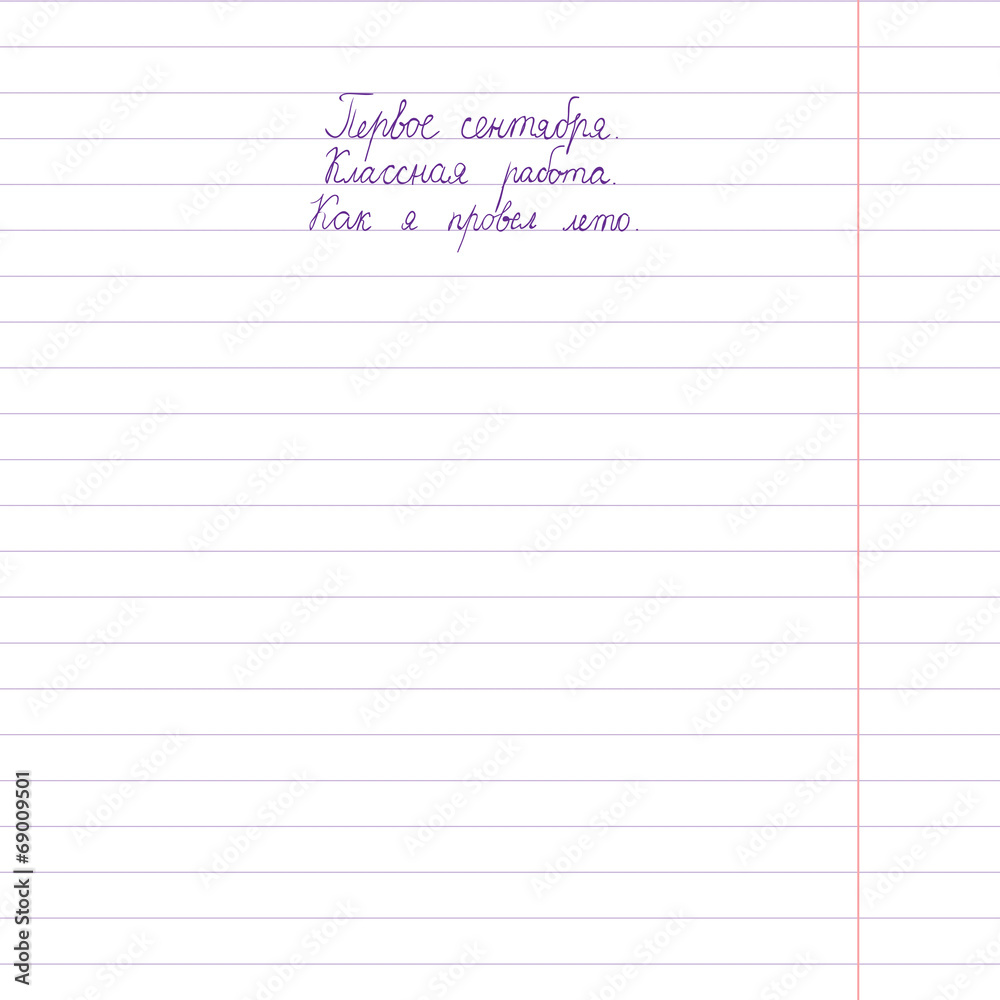 Первое сентября.
Классная работа.
Как я провел лето.
Adobe Stock | #69009501